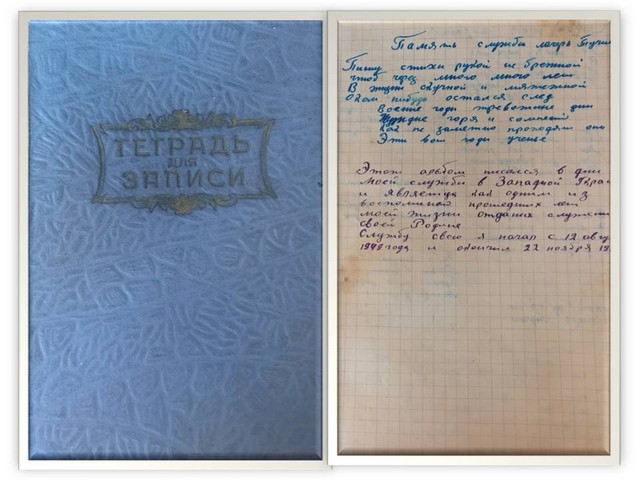 ТЕТРАДЬ
для
ЗАПИСИ
Память службы лагерь
Пишу стихи рукой не брежной
чтоб через много много лет
В жизни скучной и мятежной
Вам нибудь остался след
Военые годы тревожные дни
Трудные горя и сомнений
Как не заметно проходят они
Эти вои годы учение
Этот альбом писался в дни
моей службы в Западной
является как одним из
воспоминой прошедших лет
моей жизни отданых
своей Родине
Службу свою я начал с 12 авгу
года и окончил 22 ноября 19